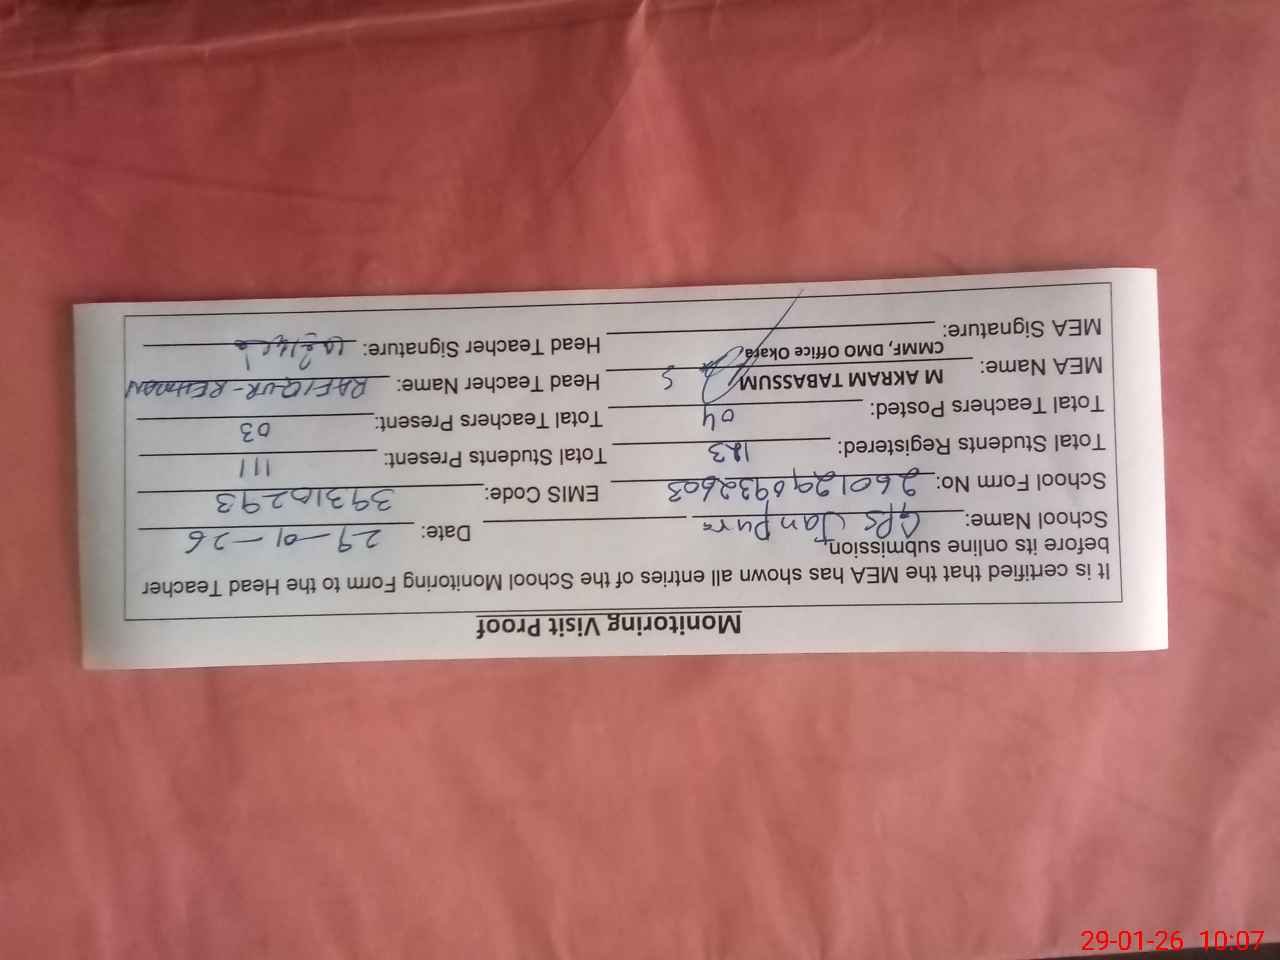 Monitoring Visit Proof
It is certified that the MEA has shown all entries of the School Monitoring Form to the Head Teacher
before its online submission.
School Name: GPS Janpura Date: 29-01-26
School Form No: EMIS Code: 39310293
Total Students Registered: 123 Total Students Present: 111
Total Teachers Posted: 04 Total Teachers Present: 03
MEA Name: M AKRAM TABASSUM Head Teacher Name: RAFIQ-UR-REHMAN
CMMF, DMO Office Okara
MEA Signature: Head Teacher Signature:
29-01-26 10:07